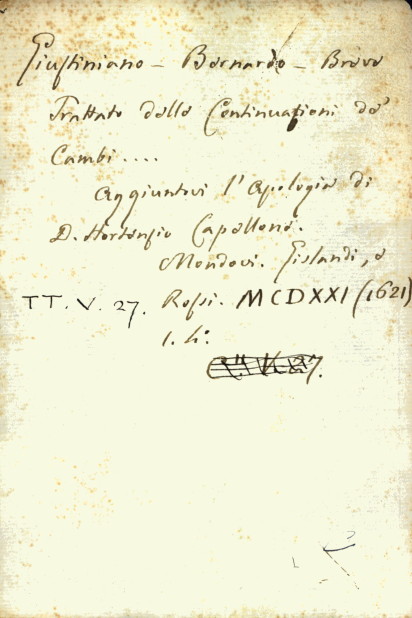 Giustiniano - Bernardo - Breve
Trattato delle Continuationi de'
Cambi....
Aggiuntovi l'Apologia di
D. Hortensio Capellone.
Mondovi. Gislandi, e
TT. V. 27. Rossi. MCDXXI (1621)
1. 4: